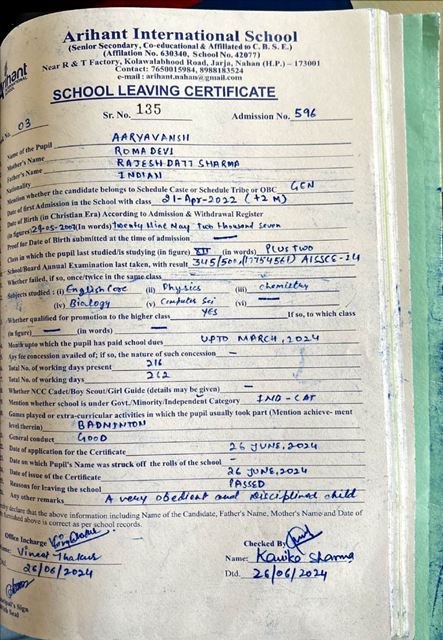 Arihant International School
(Senior Secondary, Co-educational & Affiliated to C. B. S. E.)
(Affilation No. 630340, School No. 42077)
Near R & T Factory, Kolawalabhood Road, Jarja, Nahan (H.P.) – 173001
Contact: 7650015984, 8988183524
e-mail : arihant.nahan@gmail.com
Arihant
SCHOOL LEAVING CERTIFICATE
No. 03 Sr. No. 135 Admission No. 596
Name of the Pupil AARYAVANSH
Mother's Name ROMA DEVI
Father's Name RAJESH DATT SHARMA
Nationality INDIAN
Mention whether the candidate belongs to Schedule Caste or Schedule Tribe or OBC GEN
Date of first Admission in the School with class 21-Apr-2022 (+2 M)
Date of Birth (in Christian Era) According to Admission & Withdrawal Register
(in figures) 29-05-2007 (in Words) Twenty Nine May Two thousand Seven
Proof for Date of Birth submitted at the time of admission —
Class in which the pupil last studied/is studying (in figure) XII (in words) PLUS TWO
School/Board Annual Examination last taken, with result 345/500, (17754561) AISSCE-24
Whether failed, if so, once/twice in the same class —
Subjects studied : (i) English Core (ii) Physics (iii) chemistry
(iv) Biology (v) Computer Sci (vi) —
Whether qualified for promotion to the higher class YES If so, to which class
(in figure) — (in words) —
Month upto which the pupil has paid school dues UPTO MARCH, 2024
Any fee concession availed of; if so, the nature of such concession —
Total No. of working days present 216
Total No. of working days 262
Whether NCC Cadet/Boy Scout/Girl Guide (details may be given) —
Mention whether school is under Govt./Minority/Independent Category IND - CAT
Games played or extra-curricular activities in which the pupil usually took part (Mention achieve- ment
level therein) BADMINTON
General conduct GOOD
Date of application for the Certificate 26 JUNE, 2024
Date on which Pupil's Name was struck off the rolls of the school —
Date of issue of the Certificate 26 JUNE, 2024
Reasons for leaving the school PASSED
Any other remarks A very obedient and Disciplined child
declare that the above information including Name of the Candidate, Father's Name, Mother's Name and Date of
furnished above is correct as per school records.
Office Incharge Checked By
Vineet Thakur Name: Kavita Sharma
26/06/2024 Dtd. 26/06/2024
Principal's Sign